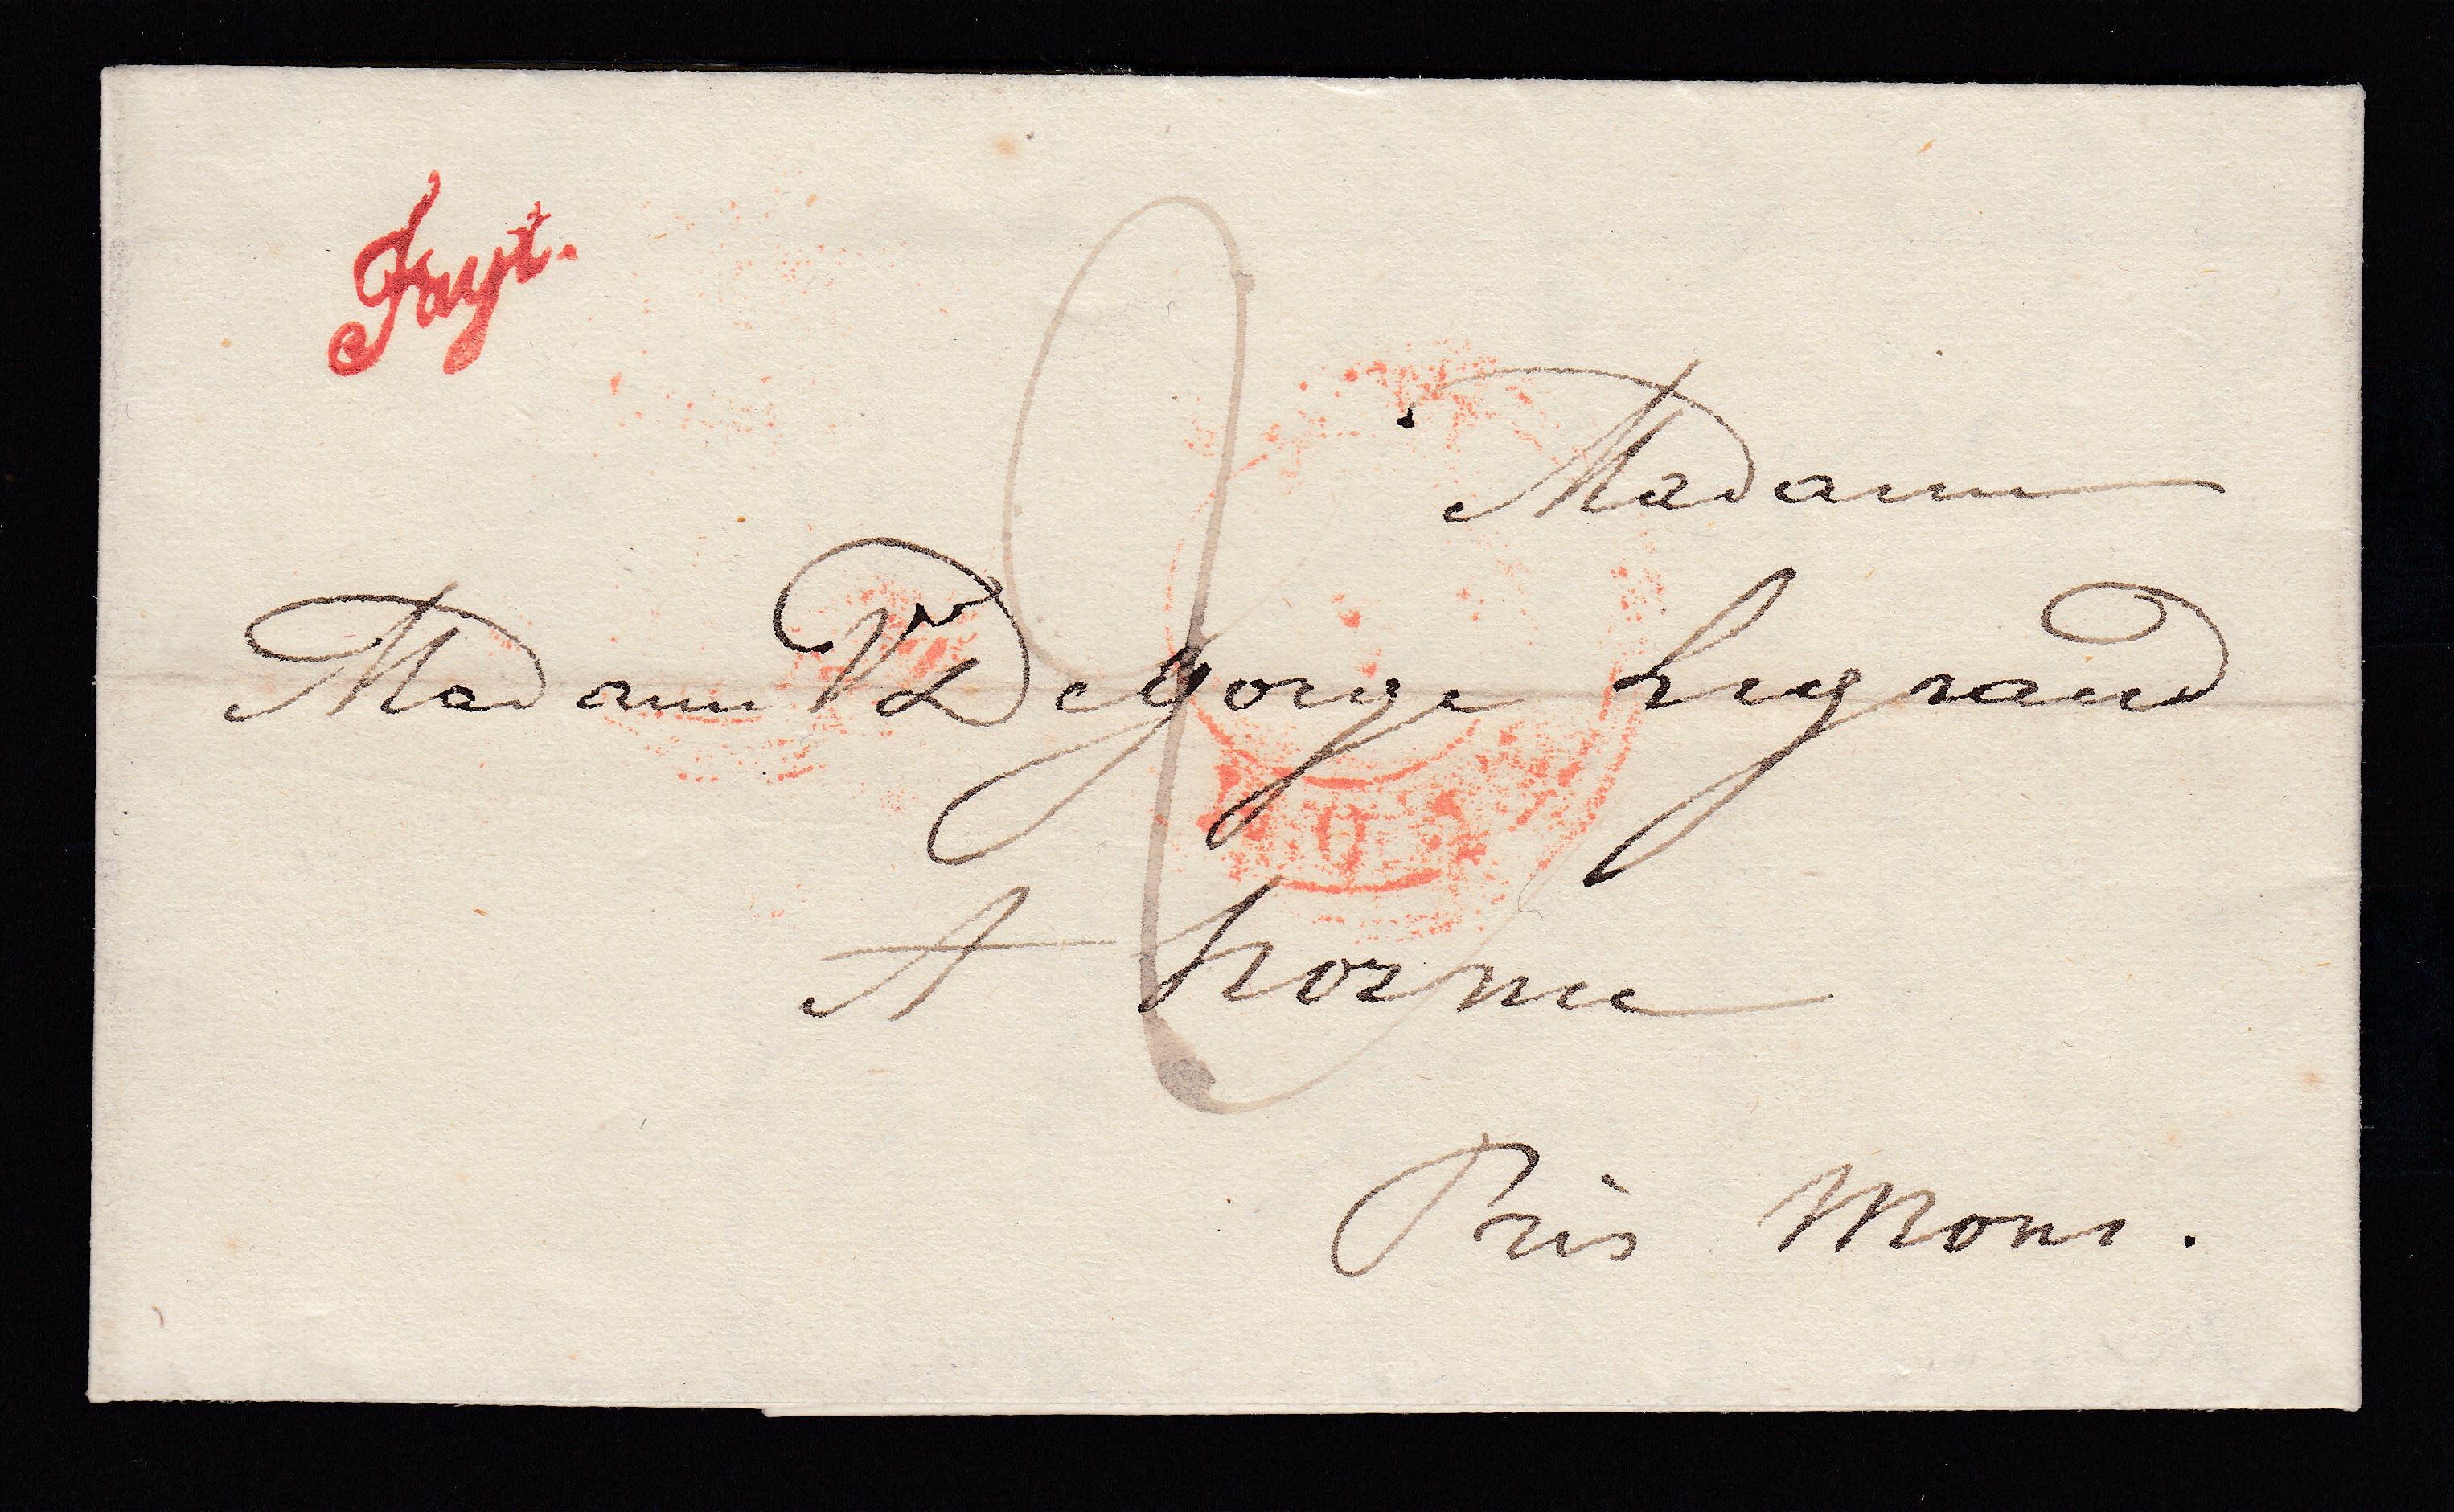 Fayt.
Madame
Madame Ve Degorge Legrand
A hornu
Près Mons.